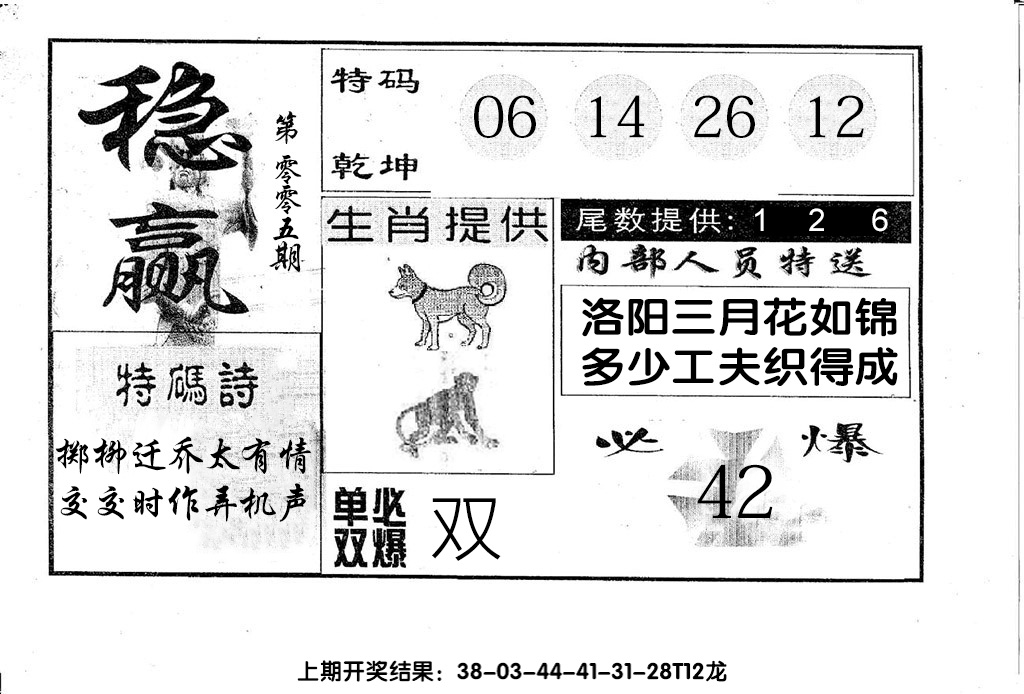 稳赢
第零零五期
特码
乾坤
06 14 26 12
生肖提供
尾数提供: 1 2 6
内部人员特送
洛阳三月花如锦
多少工夫织得成
特碼詩
掷柳迁乔太有情
交交时作弄机声
单双必爆
双
必爆
42
上期开奖结果：38-03-44-41-31-28T12龙